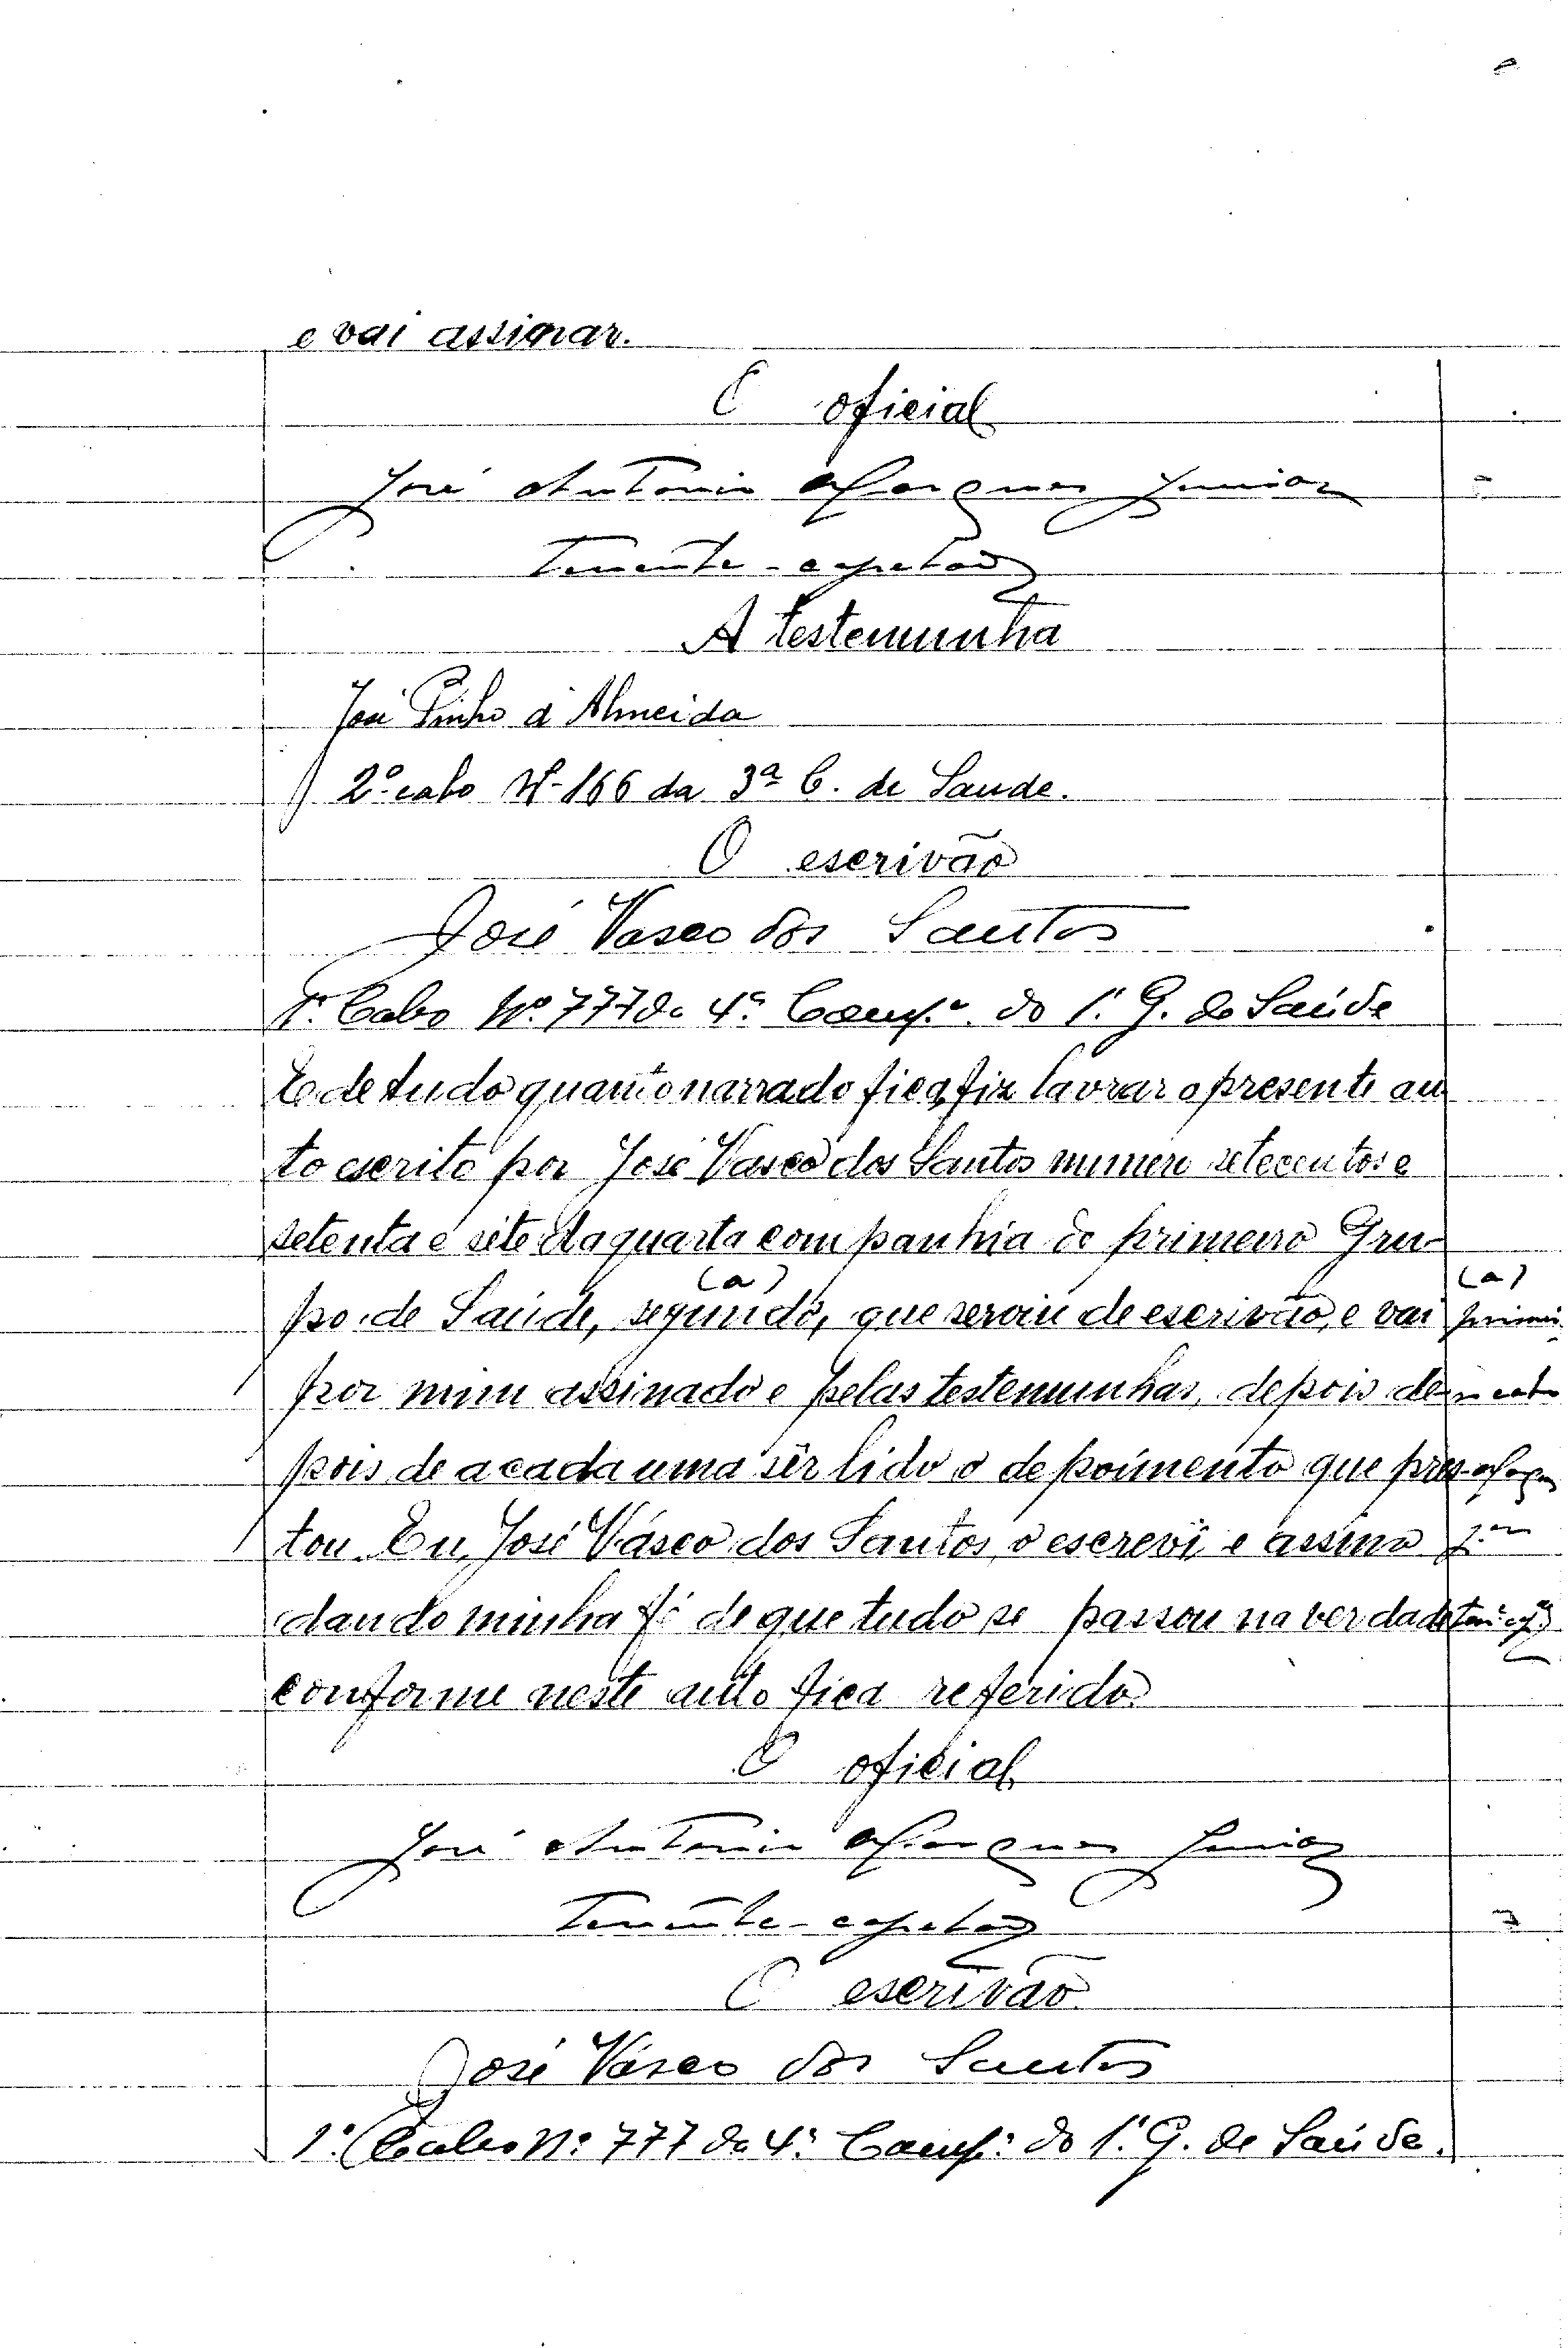 e vai assinar.
O oficial
José Antonio Marques Junior
Tenente-capelão
A testemunha
José Pinho d'Almeida
2º cabo Nº 166 da 3ª C. de Saude.
O escrivão
José Vasco dos Santos
1º Cabo Nº 777 da 4ª Comp.ª do 1º G. de Saúde
E de tudo quanto narrado fica, fiz lavrar o presente au
to escrito por José Vasco dos Santos numero setecentos e
setenta e sete da quarta companhia do primeiro Gru-
(a) (a)
po de Saúde, segundo, que serviu de escrivão, e vai primei
por mim assinado e pelas testemunhas, depois de ro cabo
pois de a cada uma sêr lido o depoimento que pres Marques
tou. Eu, José Vasco dos Santos, o escrevi e assino J.or
dando minha fé de que tudo se passou na verdade ten. cap.
conforme neste auto fica referido.
O oficial
José Antonio Marques Junior
Tenente-capelão
O escrivão
José Vasco dos Santos
1º Cabo Nº 777 da 4ª Comp.ª do 1º G. de Saúde.